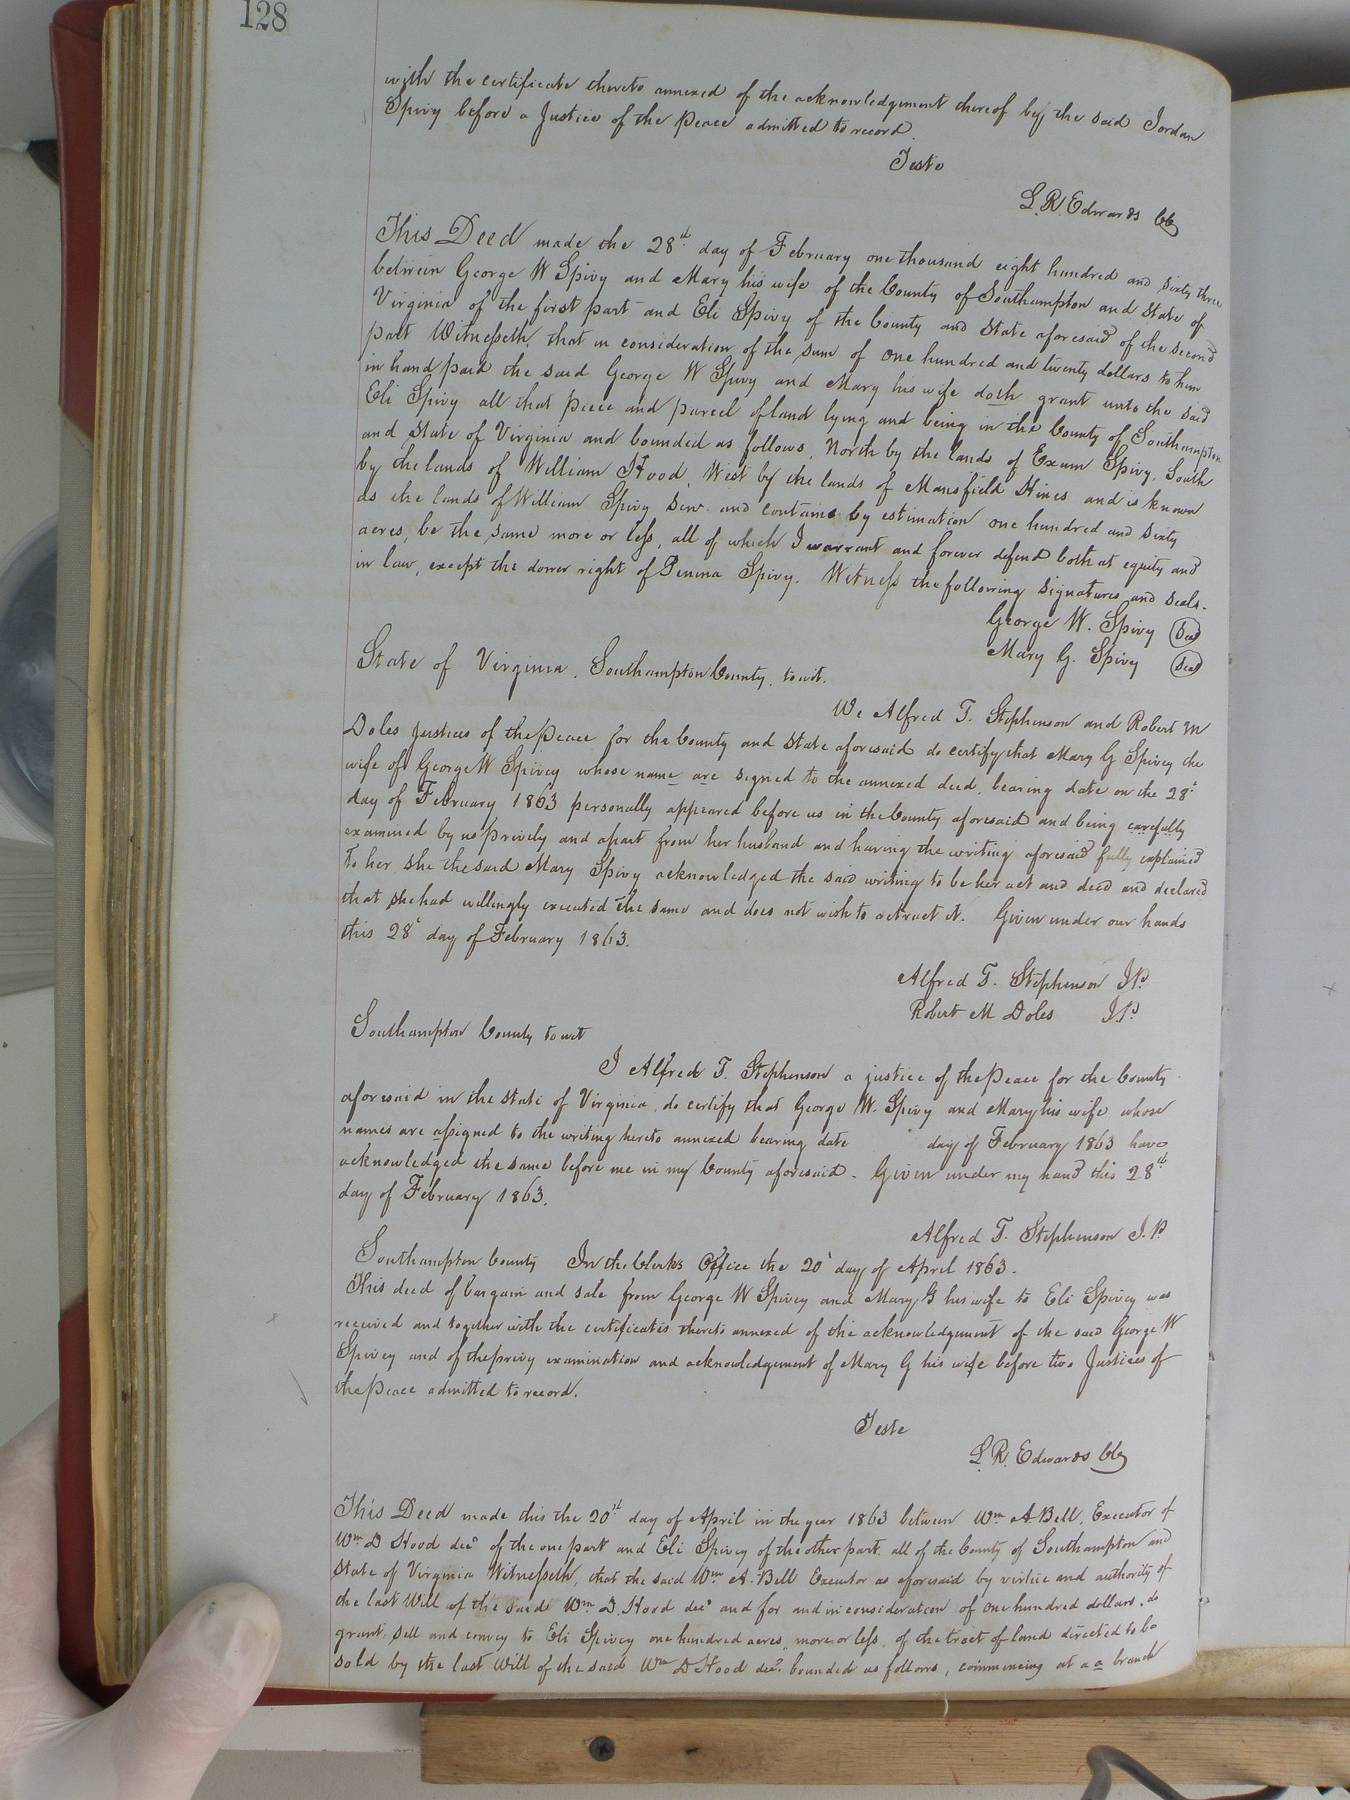 128
with the certificate thereto annexed of the acknowledgement thereof by the said Jordan
Spivy before a Justice of the Peace admitted to record.
Teste
L. R. Edwards Clk
This Deed made the 28th day of February one thousand eight hundred and sixty three
between George W Spivy and Mary his wife of the County of Southampton and State of
Virginia of the first part and Eli Spivy of the County and State aforesaid of the second
part Witnesseth, that in consideration of the sum of one hundred and twenty dollars to him
in hand paid the said George W Spivy and Mary his wife doth grant unto the said
Eli Spivy all that piece and parcel of land lying and being in the County of Southampton
and State of Virginia and bounded as follows, North by the lands of Exum Spivy, South
by the lands of William Hood, West by the lands of Mansfield Hines and is known
as the lands of William Spivy Senr. and contains by estimation one hundred and sixty
acres, be the same more or less, all of which I warrant and forever defend both at equity and
in law, except the dower right of Penina Spivy. Witness the following signatures and seals.
George W. Spivy Seal
Mary G. Spivy Seal
State of Virginia, Southampton County, to wit.
We Alfred T. Stephenson and Robert M
Doles justices of the Peace for the County and State aforesaid do certify that Mary G Spivey the
wife of George W Spivey whose name are signed to the annexed deed, bearing date on the 28t
day of February 1863 personally appeared before us in the County aforesaid and being carefully
examined by us privily and apart from her husband and having the writing aforesaid fully explained
to her she the said Mary Spivy acknowledged the said writing to be her act and deed and declared
that she had willingly executed the same and does not wish to retract it. Given under our hands
this 28t day of February 1863.
Alfred T. Stephenson J.P.
Robert M Doles J.P.
Southampton County to wit
I Alfred T. Stephenson a justice of the Peace for the County
aforesaid in the State of Virginia, do certify that George W. Spivy and Mary his wife whose
names are assigned to the writing hereto annexed bearing date day of February 1863 have
acknowledged the same before me in my County aforesaid. Given under my hand this 28th
day of February 1863.
Alfred T. Stephenson J.P.
Southampton County In the Clerks Office the 20t day of April 1863.
This deed of bargain and sale from George W Spivey and Mary G his wife to Eli Spivey was
received and together with the certificates thereto annexed of the acknowledgement of the said George W
Spivey and of the privy examination and acknowledgement of Mary G his wife before two Justices of
the Peace admitted to record.
Teste
L. R. Edwards Clk
This Deed made this the 20th day of April in the year 1863 between Wm A Bell, Executor of
Wm D Hood decd of the one part and Eli Spivey of the other part, all of the County of Southampton and
State of Virginia Witnesseth, that the said Wm A. Bell Executor as aforesaid by virtue and authority of
the last Will of the said Wm D. Hood decd and for and in consideration of one hundred dollars, do
grant, sell and convey to Eli Spivey one hundred acres, more or less, of the tract of land directed to be
sold by the last Will of the said Wm D Hood decd. bounded as follows, commencing at a a branch